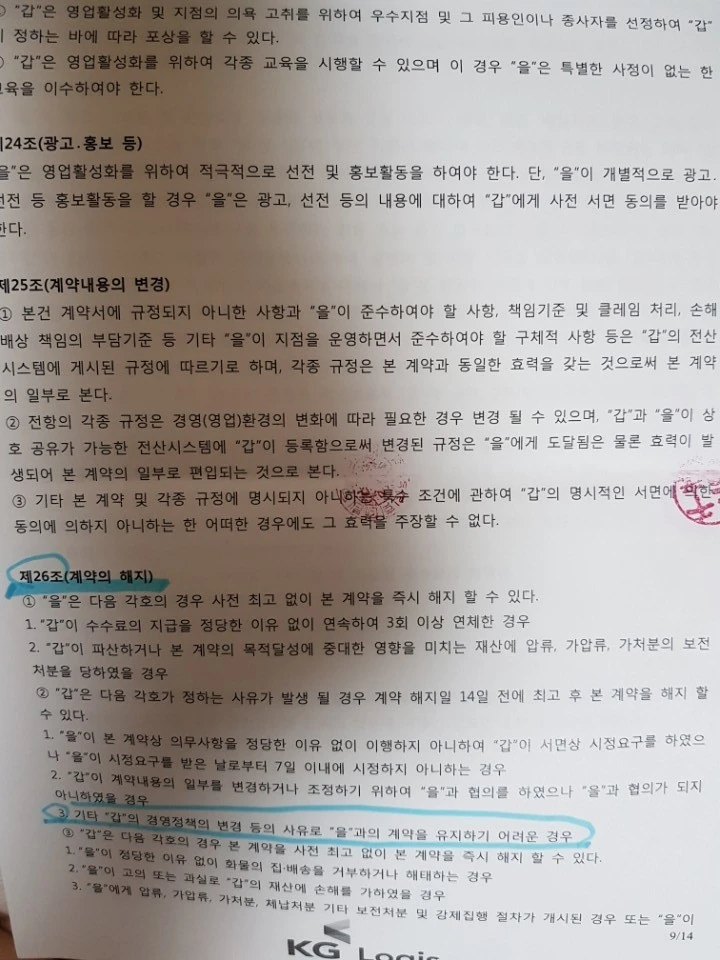 ① "갑"은 영업활성화 및 지점의 의욕 고취를 위하여 우수지점 및 그 피용인이나 종사자를 선정하여 "갑"
정하는 바에 따라 포상을 할 수 있다.
"갑"은 영업활성화를 위하여 각종 교육을 시행할 수 있으며 이 경우 "을"은 특별한 사정이 없는 한
교육을 이수하여야 한다.
제24조(광고·홍보 등)
"을"은 영업활성화를 위하여 적극적으로 선전 및 홍보활동을 하여야 한다. 단, "을"이 개별적으로 광고.
선전 등 홍보활동을 할 경우 "을"은 광고, 선전 등의 내용에 대하여 "갑"에게 사전 서면 동의를 받아야
한다.
제25조(계약내용의 변경)
① 본건 계약서에 규정되지 아니한 사항과 "을"이 준수하여야 할 사항, 책임기준 및 클레임 처리, 손해
배상 책임의 부담기준 등 기타 "을"이 지점을 운영하면서 준수하여야 할 구체적 사항 등은 "갑"의 전산
시스템에 게시된 규정에 따르기로 하며, 각종 규정은 본 계약과 동일한 효력을 갖는 것으로써 본 계약
의 일부로 본다.
② 전항의 각종 규정은 경영(영업)환경의 변화에 따라 필요한 경우 변경 될 수 있으며, "갑"과 "을"이 상
호 공유가 가능한 전산시스템에 "갑"이 등록함으로써 변경된 규정은 "을"에게 도달됨은 물론 효력이 발
생되어 본 계약의 일부로 편입되는 것으로 본다.
③ 기타 본 계약 및 각종 규정에 명시되지 아니하는 특수 조건에 관하여 "갑"의 명시적인 서면에 의한
동의에 의하지 아니하는 한 어떠한 경우에도 그 효력을 주장할 수 없다.
제26조(계약의 해지)
① "을"은 다음 각호의 경우 사전 최고 없이 본 계약을 즉시 해지 할 수 있다.
1. "갑"이 수수료의 지급을 정당한 이유 없이 연속하여 3회 이상 연체한 경우
2. "갑"이 파산하거나 본 계약의 목적달성에 중대한 영향을 미치는 재산에 압류, 가압류, 가처분의 보전
처분을 당하였을 경우
② "갑"은 다음 각호가 정하는 사유가 발생 될 경우 계약 해지일 14일 전에 최고 후 본 계약을 해지 할
수 있다.
1. "을"이 본 계약상 의무사항을 정당한 이유 없이 이행하지 아니하여 "갑"이 서면상 시정요구를 하였으
나 "을"이 시정요구를 받은 날로부터 7일 이내에 시정하지 아니하는 경우
2. "갑"이 계약내용의 일부를 변경하거나 조정하기 위하여 "을"과 협의를 하였으나 "을"과 협의가 되지
아니하였을 경우
3. 기타 "갑"의 경영정책의 변경 등의 사유로 "을"과의 계약을 유지하기 어려운 경우
③ "갑"은 다음 각호의 경우 본 계약을 사전 최고 없이 본 계약을 즉시 해지 할 수 있다.
1. "을"이 정당한 이유 없이 화물의 집·배송을 거부하거나 해태하는 경우
2. "을"이 고의 또는 과실로 "갑"의 재산에 손해를 가하였을 경우
3. "을"에게 압류, 가압류, 가처분, 체납처분 기타 보전처분 및 강제집행 절차가 개시된 경우 또는 "을"이
9/14
KG Logis